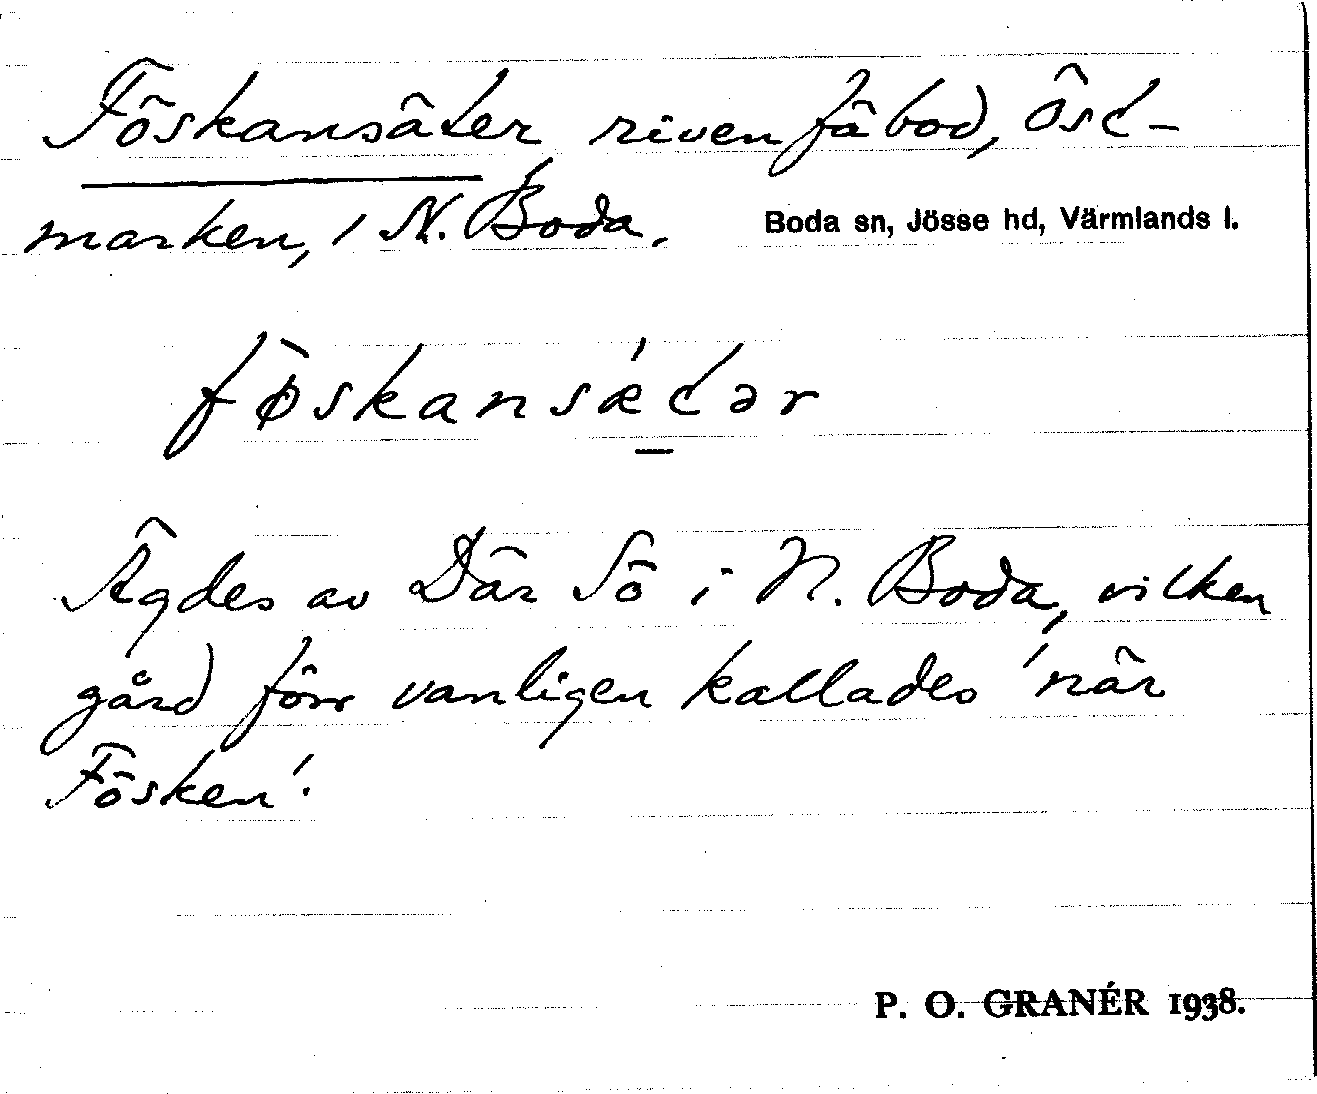 Föskansäter riven fäbod, Öst-
marken, i N. Boda. Boda sn, Jösse hd, Värmlands l.
fø̀skansǽtər
Ägdes av Där Sö i N. Boda, vilken
gård förr vanligen kallades 'när
Fösken'.
P. O. GRANÉR 1938.